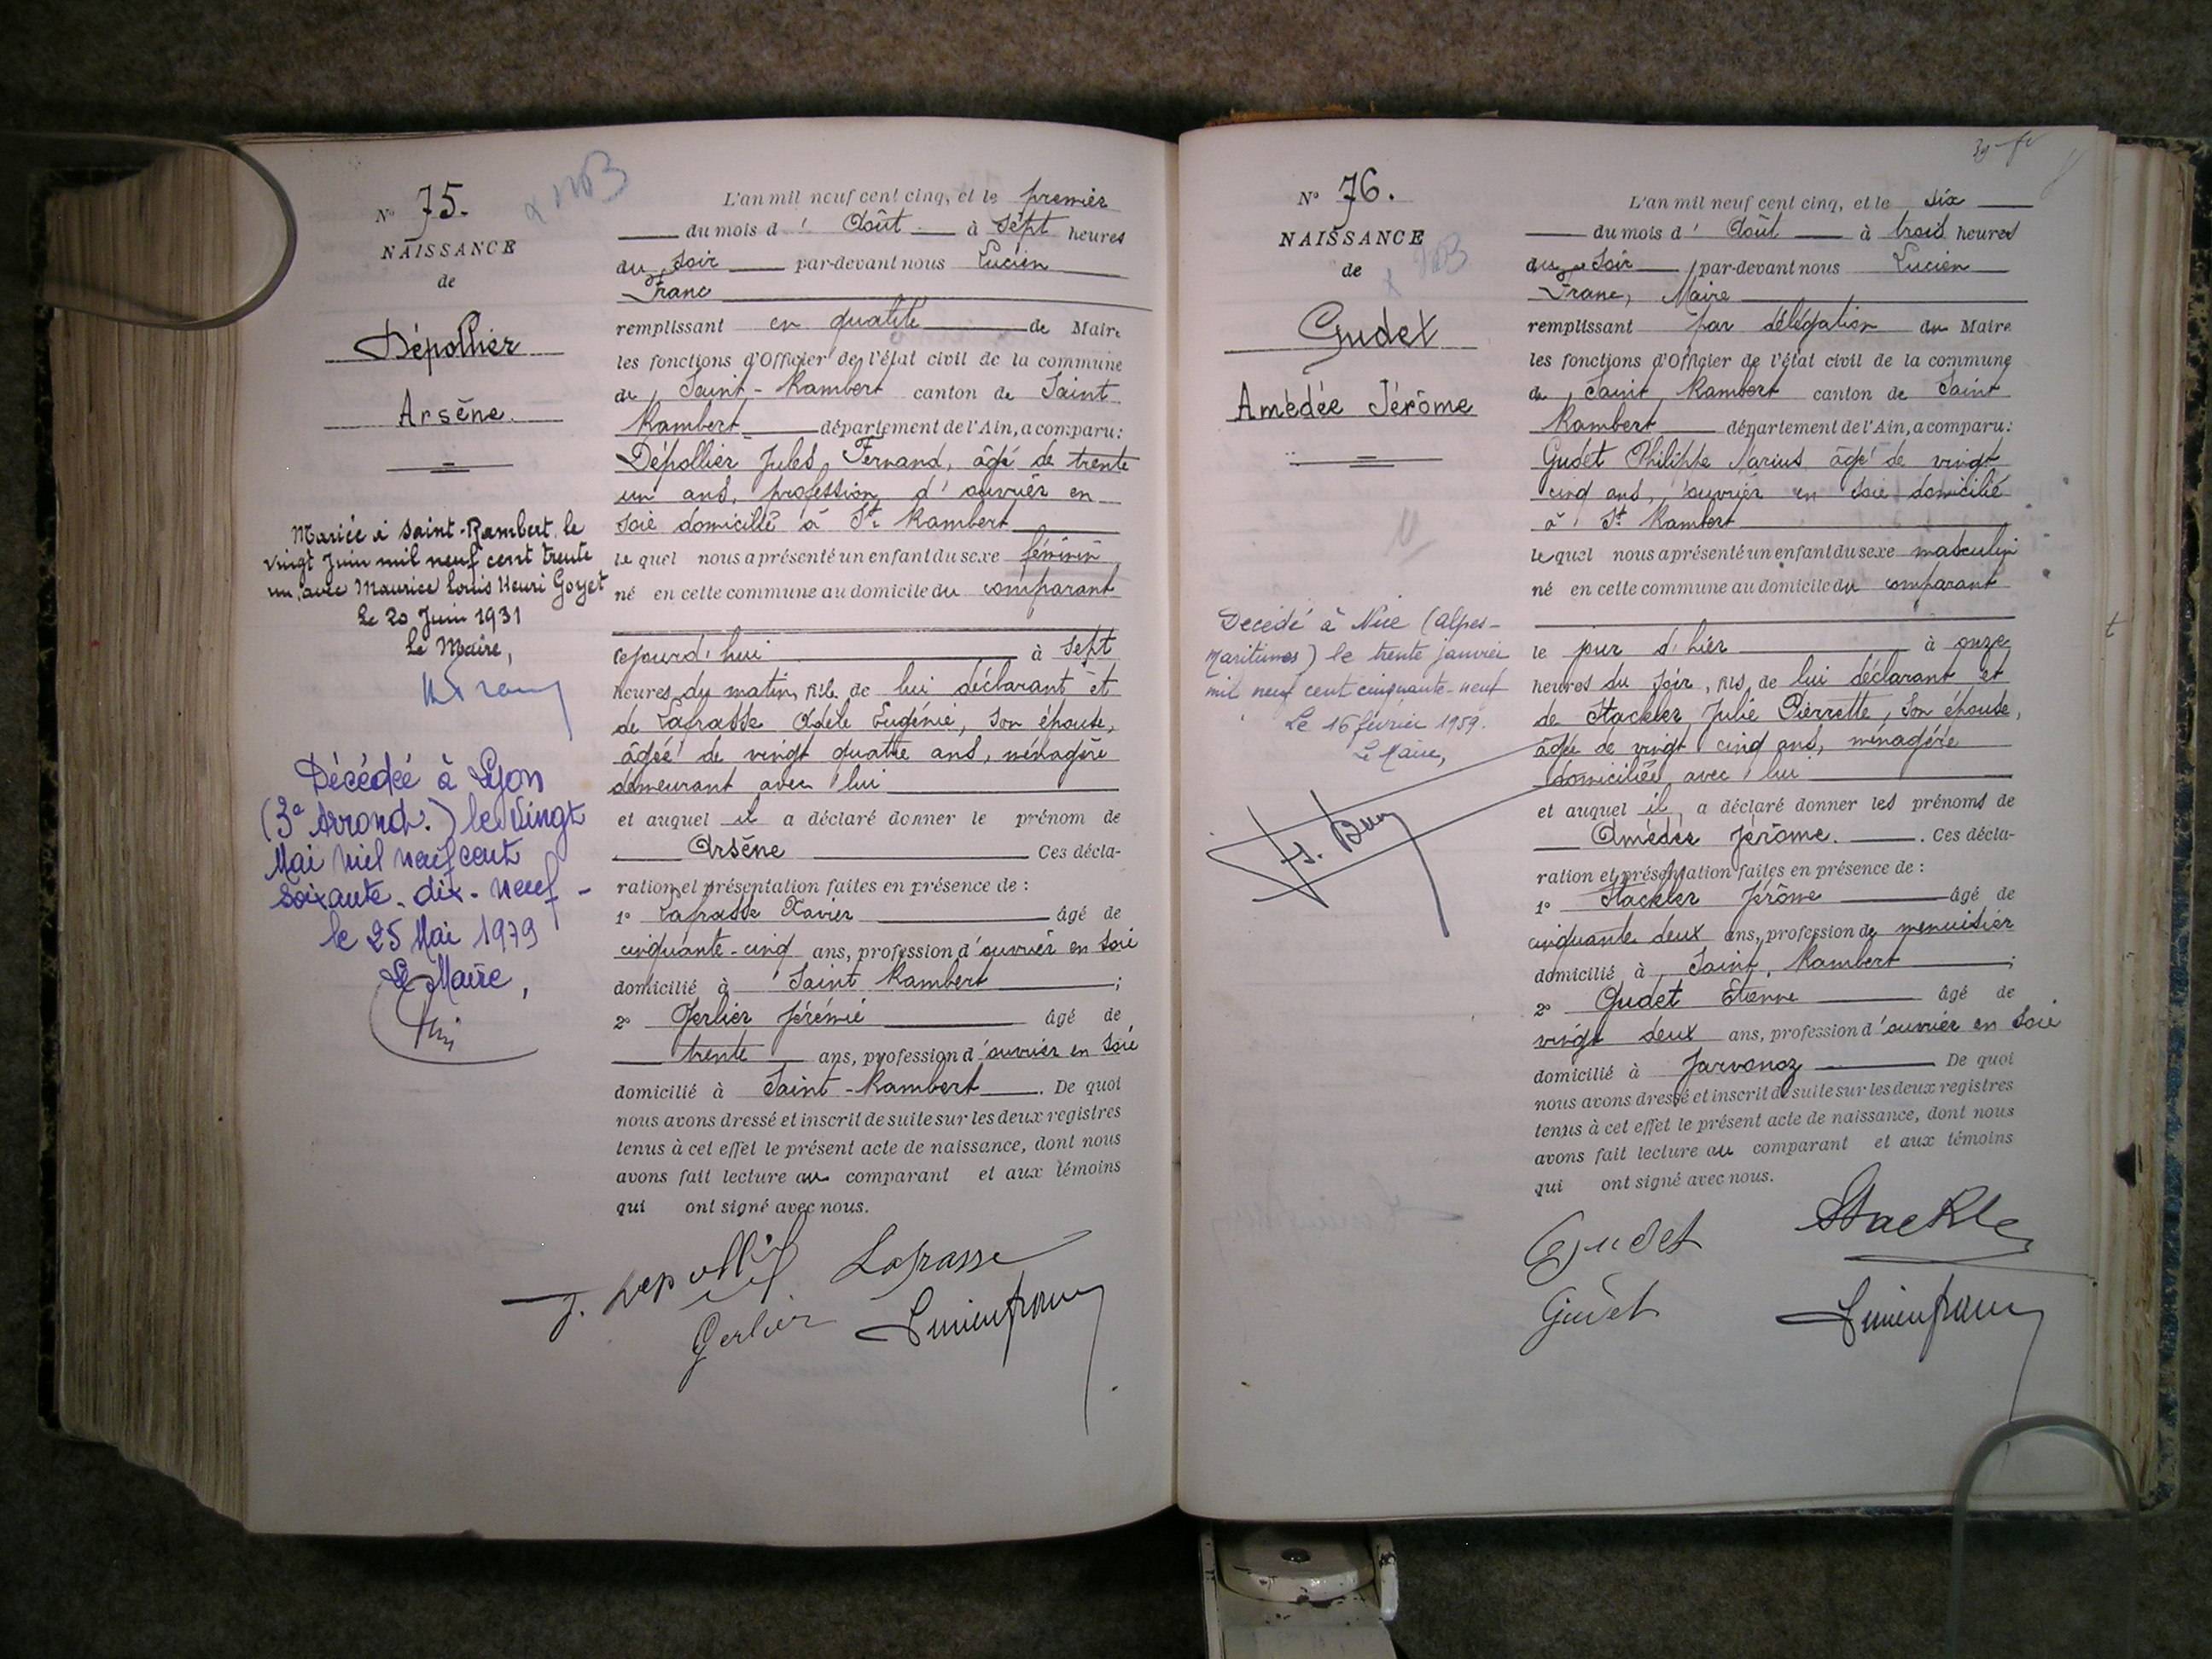 N° 75.
NAISSANCE
de
Dépollier
Arsène.
Mariée à Saint-Rambert le
vingt Juin mil neuf cent trente
un avec Maurice Louis Henri Goyet
Le 20 Juin 1931
Le Maire,
Décédée à Lyon
(3e Arrond.) le Vingt
Mai mil neuf cent
Soixante-dix-neuf -
le 25 Mai 1979
Le Maire,
L'an mil neuf cent cinq, et le premier
du mois d' Août à sept heures
du soir par-devant nous Lucien
Franc
remplissant en qualité de Maire
les fonctions d'Officier de l'état civil de la commune
de Saint-Rambert canton de Saint
Rambert département de l'Ain, a comparu:
Dépollier Jules Fernand, âgé de trente
un ans, profession d'ouvrier en
soie domicilié à St Rambert
le quel nous a présenté un enfant du sexe féminin
né en cette commune au domicile du comparant
cejourd'hui à sept
heures du matin, fille de lui déclarant et
de Lafrasse Adèle Eugénie, son épouse,
âgée de vingt quatre ans, ménagère
demeurant avec lui
et auquel il a déclaré donner le prénom de
Arsène Ces décla-
ration et présentation faites en présence de :
1° Lafrasse Xavier âgé de
cinquante-cinq ans, profession d'ouvrier en soie
domicilié à Saint Rambert ;
2° Gerlier Jérémie âgé de
trente ans, profession d'ouvrier en soie
domicilié à Saint-Rambert. De quoi
nous avons dressé et inscrit de suite sur les deux registres
tenus à cet effet le présent acte de naissance, dont nous
avons fait lecture au comparant et aux témoins
qui ont signé avec nous.
J. Depollier Lafrasse
Gerlier Lucien franc
N° 76.
NAISSANCE
de
Gudet
Amédée Jérôme
Decédé à Nice (Alpes-
Maritimes) le trente janvier
mil neuf cent cinquante-neuf
Le 16 février 1959.
Le Maire,
L'an mil neuf cent cinq, et le six
du mois d' Août à trois heures
du soir par-devant nous Lucien
Franc, Maire
remplissant par délégation du Maire
les fonctions d'Officier de l'état civil de la commune
de Saint Rambert canton de Saint
Rambert département de l'Ain, a comparu:
Gudet Philippe Marius âgé de vingt
cinq ans, ouvrier en soie domicilié
à St Rambert
le quel nous a présenté un enfant du sexe masculin
né en cette commune au domicile du comparant
le jour d'hier à onze
heures du soir, fils de lui déclarant et
de Stackler Julie Pierrette, son épouse,
âgée de vingt cinq ans, ménagère
domiciliée avec lui
et auquel il a déclaré donner les prénoms de
Amédée Jérôme. . Ces décla-
ration et présentation faites en présence de :
1° Stackler Jérôme âgé de
cinquante deux ans, profession de menuisier
domicilié à Saint Rambert ;
2° Gudet Etienne âgé de
vingt deux ans, profession d'ouvrier en soie
domicilié à Jarvonoz De quoi
nous avons dressé et inscrit de suite sur les deux registres
tenus à cet effet le présent acte de naissance, dont nous
avons fait lecture au comparant et aux témoins
qui ont signé avec nous.
Gudet Stackler
Gudet Lucien franc